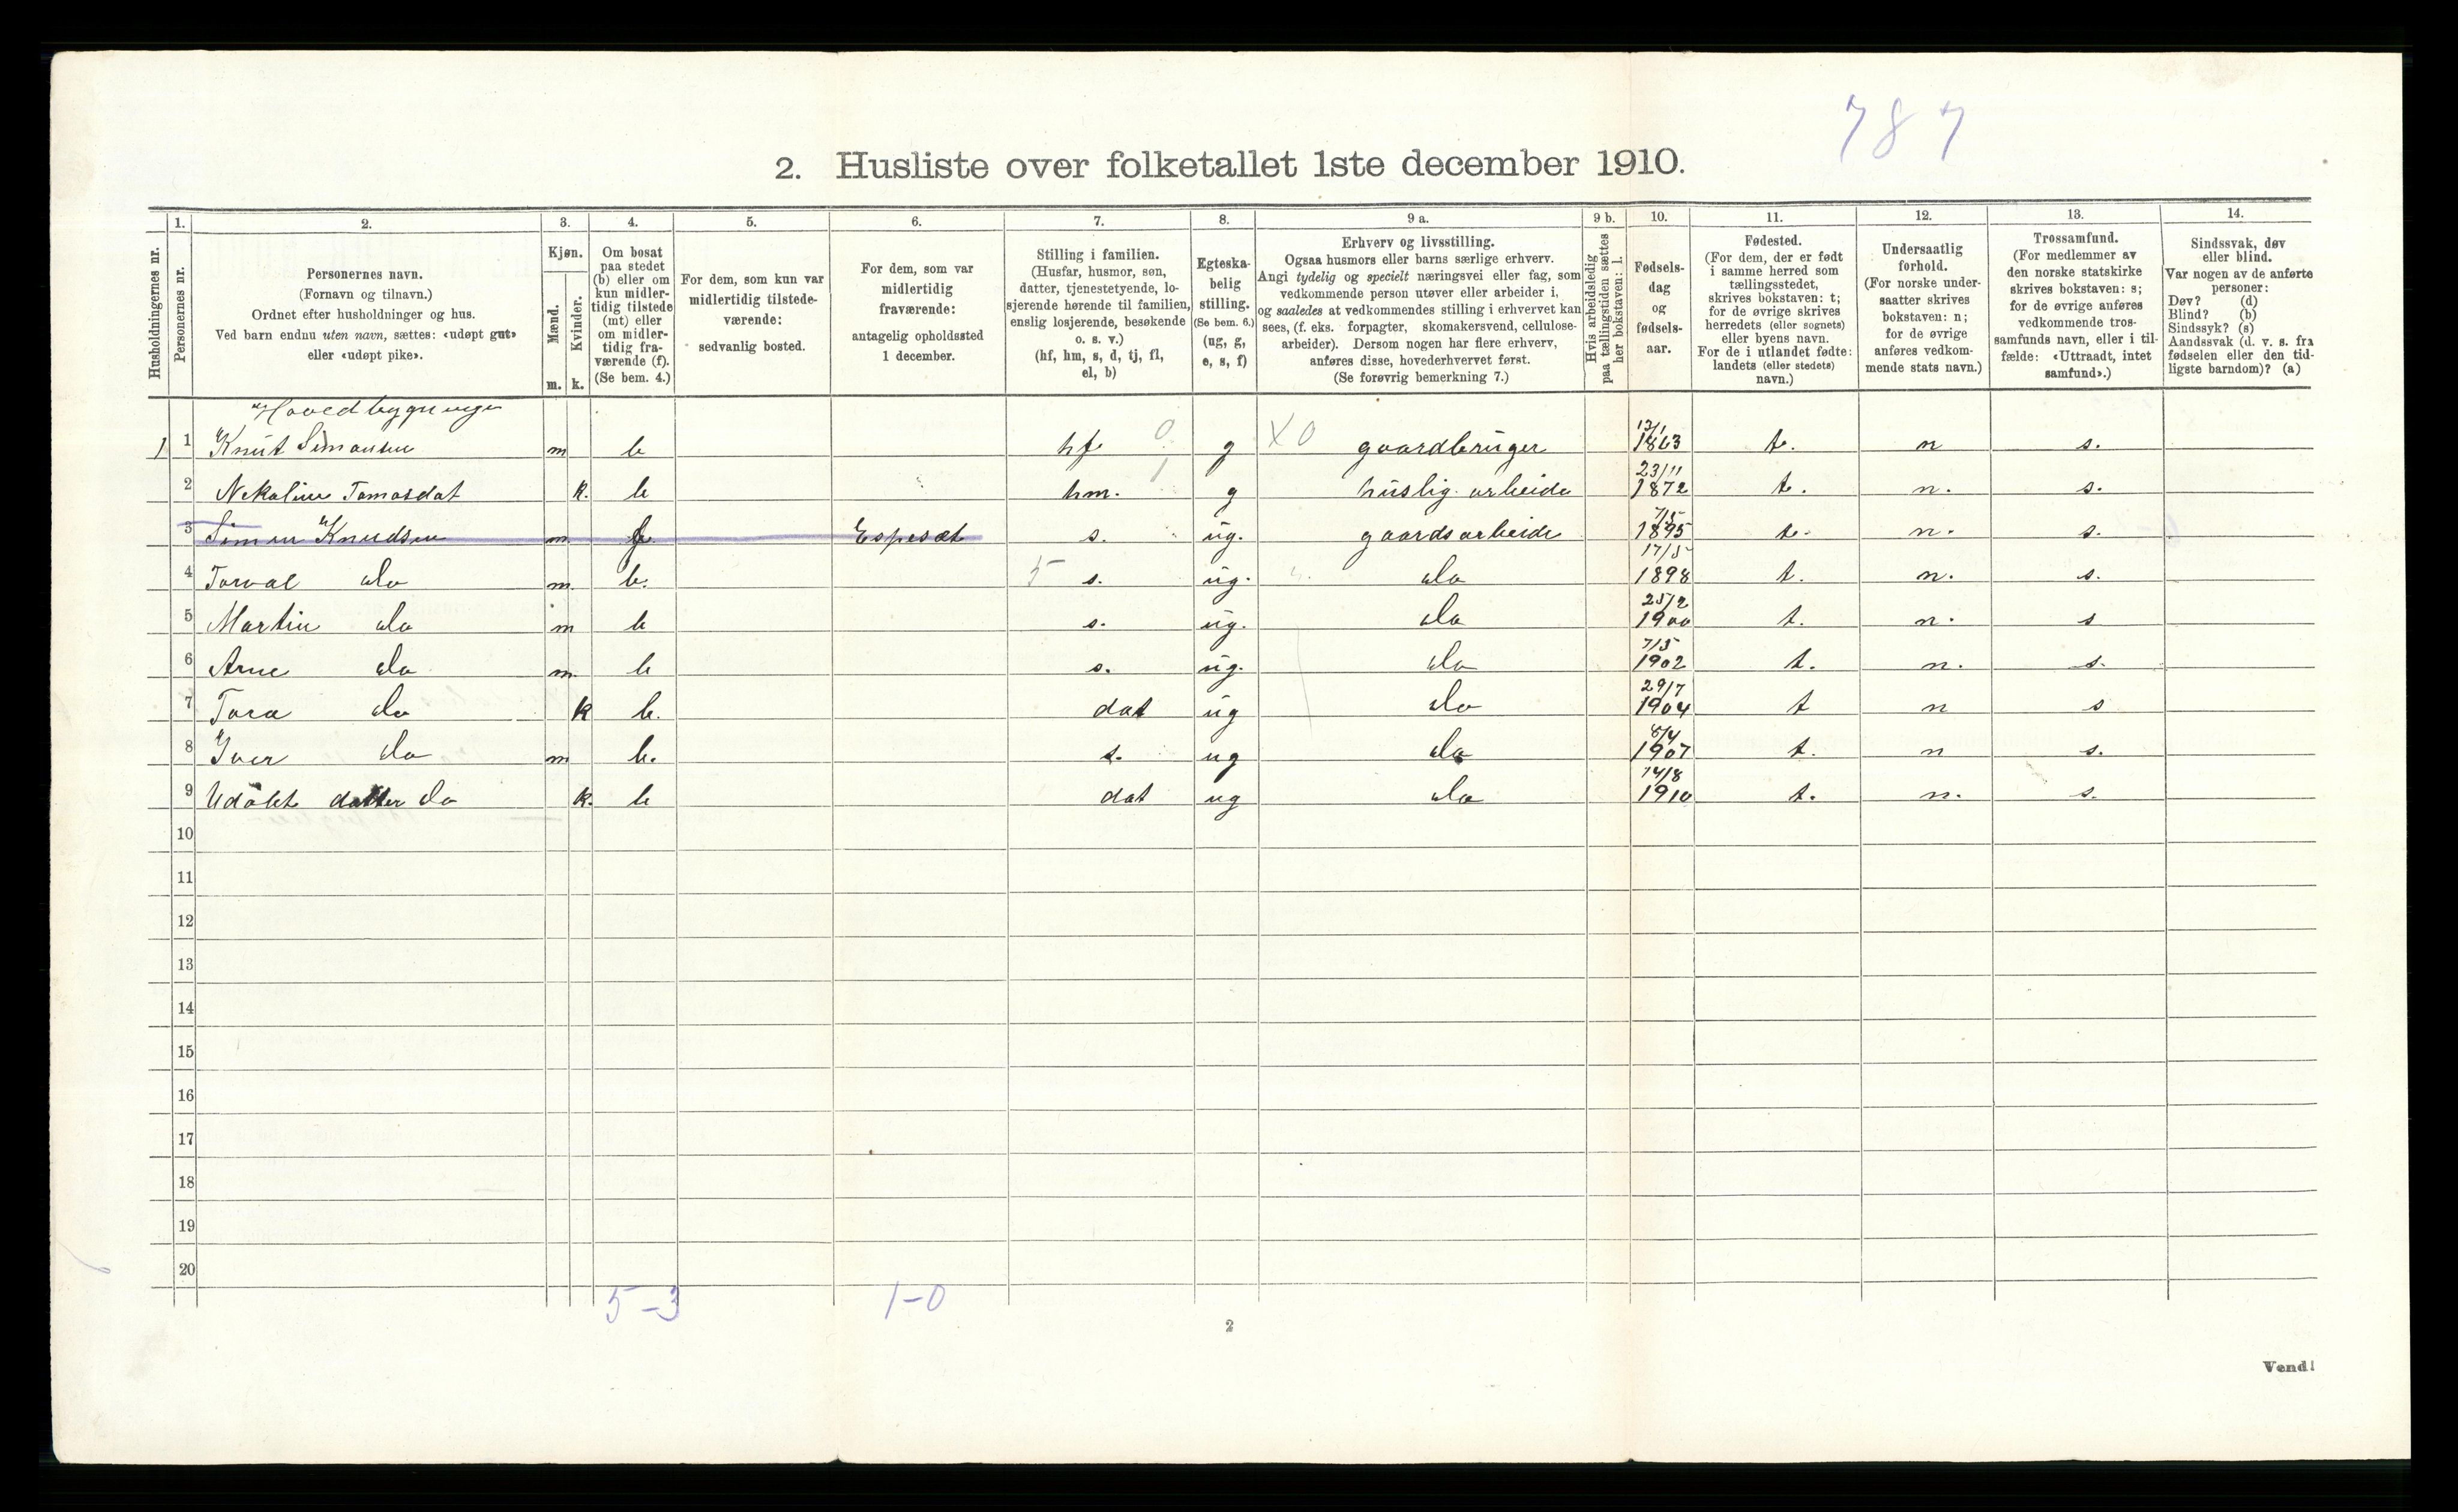 787
2. Husliste over folketallet 1ste december 1910.
1. 2. 3. 4. 5. 6. 7. 8. 9 a. 9 b. 10. 11. 12. 13. 14.
Husholdningernes nr.
Personernes nr.
Personernes navn.
(Fornavn og tilnavn.)
Ordnet efter husholdninger og hus.
Ved barn endnu uten navn, sættes: «udøpt gut»
eller «udøpt pike».
Kjøn.
Mænd.
Kvinder.
m. k.
Om bosat
paa stedet
(b) eller om
kun midler-
tidig tilstede
(mt) eller
om midler-
tidig fra-
værende (f).
(Se bem. 4.)
For dem, som kun var
midlertidig tilstede-
værende:
sedvanlig bosted.
For dem, som var
midlertidig
fraværende:
antagelig opholdssted
1 december.
Stilling i familien.
(Husfar, husmor, søn,
datter, tjenestetyende, lo-
sjerende hørende til familien,
enslig losjerende, besøkende
o. s. v.)
(hf, hm, s, d, tj, fl,
el, b)
Egteska-
belig
stilling.
(Se bem. 6.)
(ug, g,
e, s, f)
Erhverv og livsstilling.
Ogsaa husmors eller barns særlige erhverv.
Angi tydelig og specielt næringsvei eller fag, som
vedkommende person utøver eller arbeider i,
og saaledes at vedkommendes stilling i erhvervet kan
sees, (f. eks. forpagter, skomakersvend, cellulose-
arbeider). Dersom nogen har flere erhverv,
anføres disse, hovederhvervet først.
(Se forøvrig bemerkning 7.)
Hvis arbeidsledig
paa tællingstiden sættes
her bokstaven: l.
Fødsels-
dag
og
fødsels-
aar.
Fødested.
(For dem, der er født
i samme herred som
tællingsstedet,
skrives bokstaven: t;
for de øvrige skrives
herredets (eller sognets)
eller byens navn.
For de i utlandet fødte:
landets (eller stedets)
navn.)
Undersaatlig
forhold.
(For norske under-
saatter skrives
bokstaven: n;
for de øvrige
anføres vedkom-
mende stats navn.)
Trossamfund.
(For medlemmer av
den norske statskirke
skrives bokstaven: s;
for de øvrige anføres
vedkommende tros-
samfunds navn, eller i til-
fælde: «Uttraadt, intet
samfund».)
Sindssvak, døv
eller blind.
Var nogen av de anførte
personer:
Døv? (d)
Blind? (b)
Sindssyk? (s)
Aandssvak (d. v. s. fra
fødselen eller den tid-
ligste barndom)? (a)
Hovedbygninge
1 1 Knut Simonsen m b hf 0 g X0 gaardbruger 13/1 1863 t. n s.
2 Nekoline Tomasdat k. b hm. 1 g huslig arbeide 23/11 1872 t. n. s.
3 Simon Knudsen m f Espesæt s. ug. gaardsarbeide 7/5 1895 t. n. s.
4 Torval do m. b. 5 s. ug. do 17/5 1898 t. n. s.
5 Martin do m b s. ug. do 25/2 1900 t. n. s
6 Arne do m. b s. ug. do 7/5 1902 t. n. s.
7 Tora do k b. dat ug do 29/7 1904 t n s
8 Iver do m b. s. ug do 8/4 1907 t. n s.
9 Udøbt datter do k. b dat ug do 14/8 1910 t. n. s.
10
11
12
13
14
15
16
17
18
19
20
5-3 1-0
2
Vend!